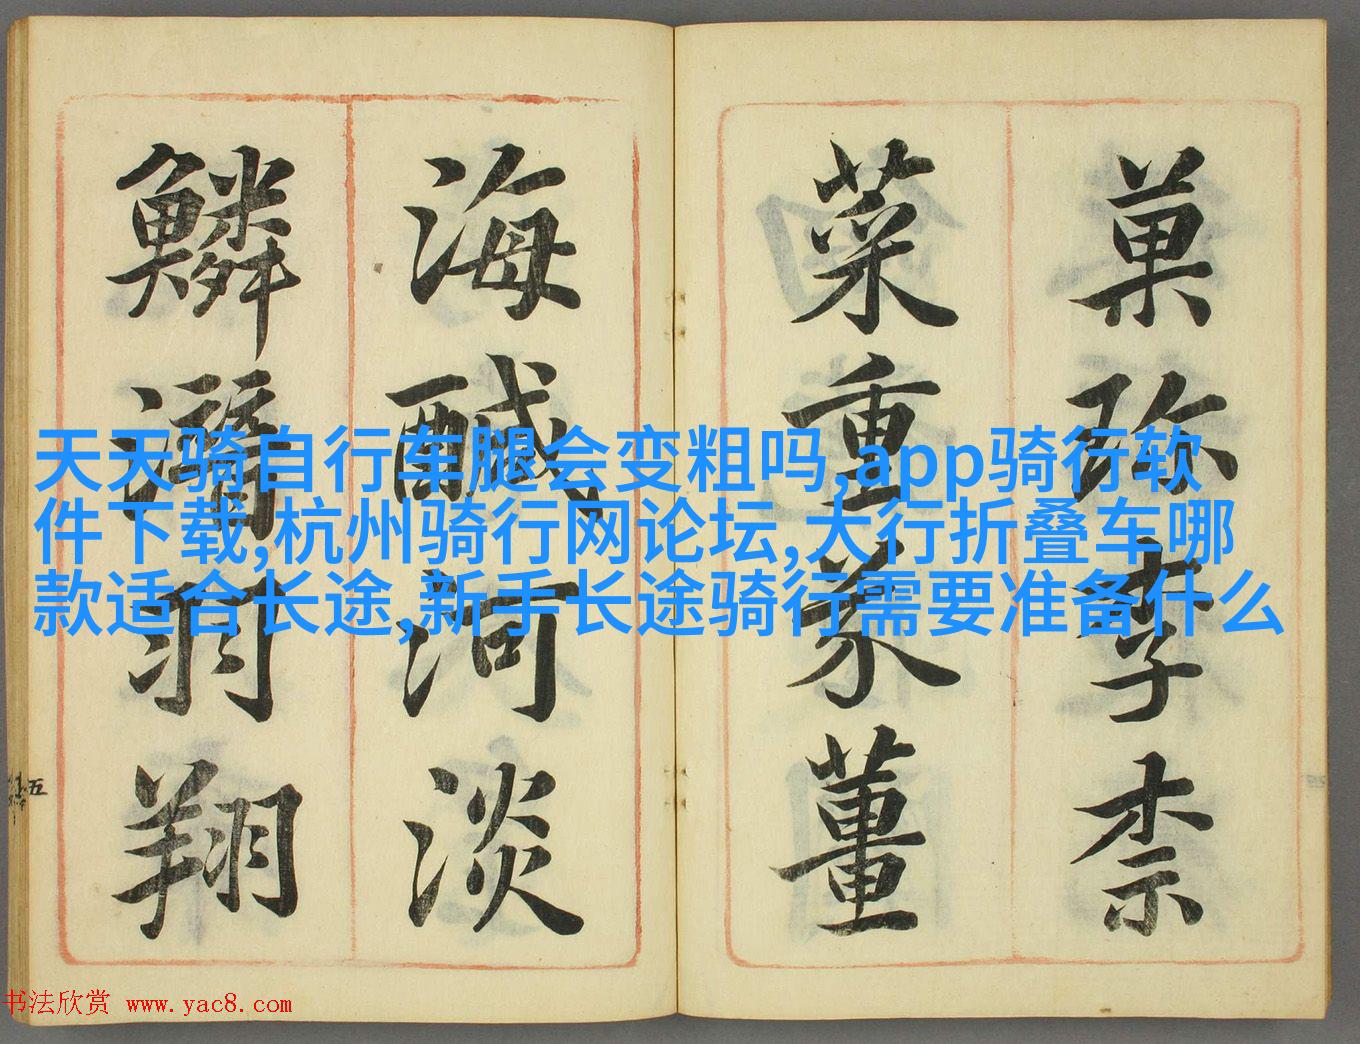 菓珎李柰
菜重芥薑
海醎河淡
鱗潛羽翔
天天骑自行车腿会变粗吗,app骑行软
件下载,杭州骑行网论坛,大行折叠车哪
款适合长途,新手长途骑行需要准备什么
五
书法欣赏 www.yac8.com